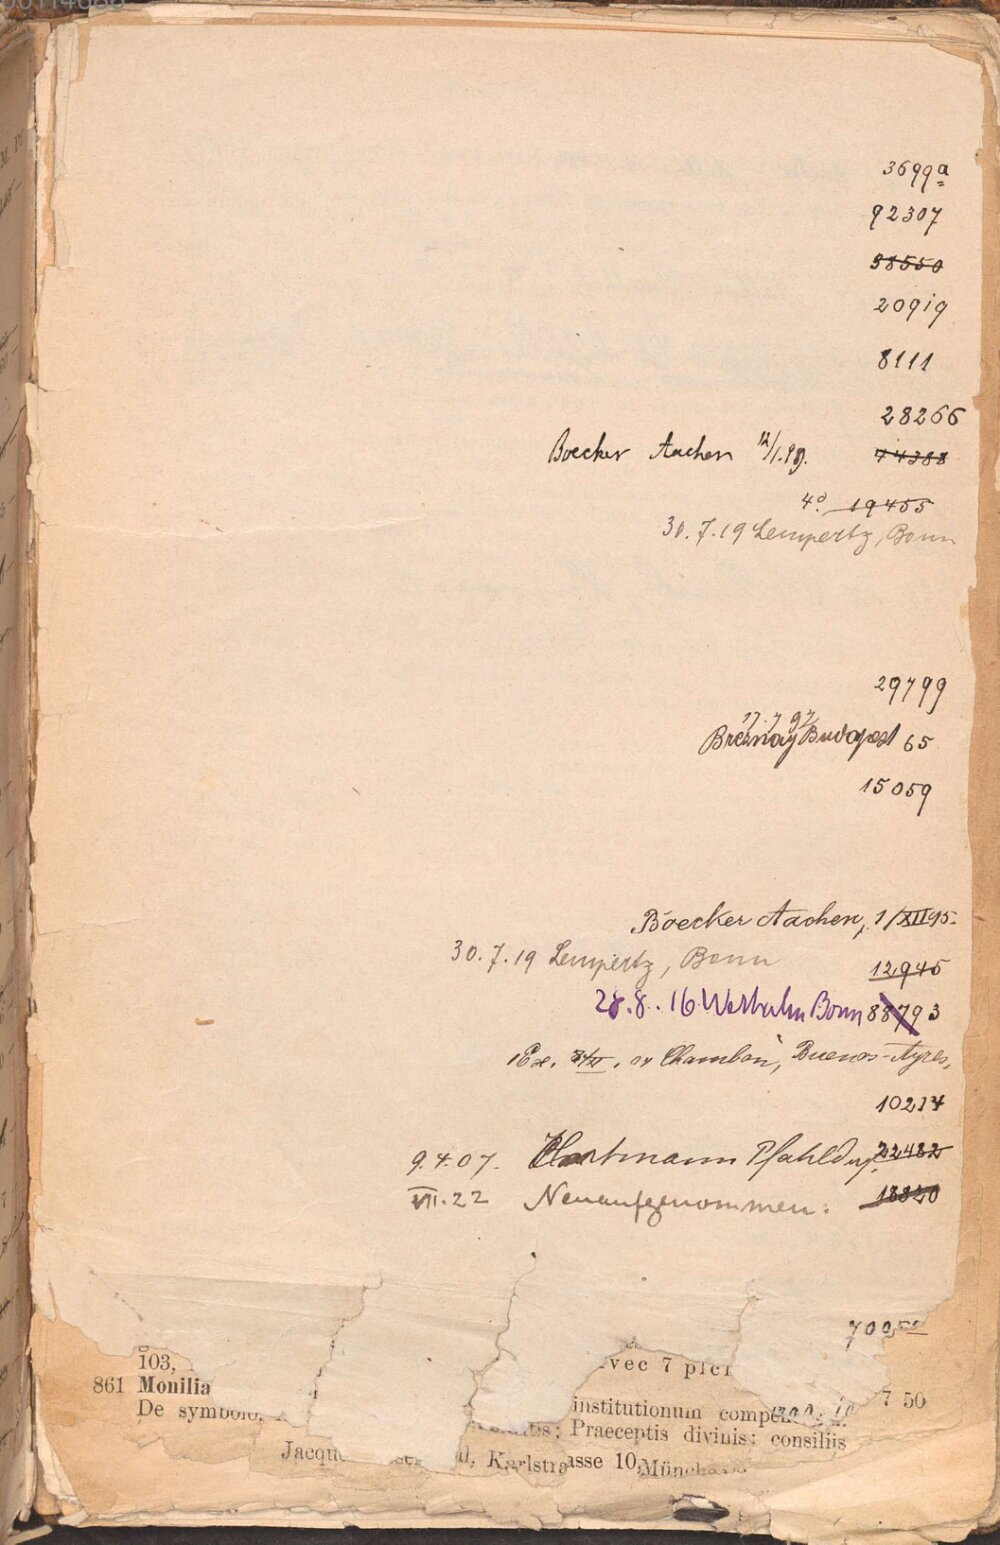 3699a
92307
38550
20919
8111
28266
Boecker Aachen 12/1.99. 74388
4° 19455
30.7.19 Lempertz, Bonn
29799
17.7 97
Breznay Budapest 65
15059
Boecker Aachen, 1/XII 95.
30.7.19 Lempertz, Bonn 12945
28.8.16 Bonn 88793
Chambon, Buenos-Ayres,
10214
9.4.07. Hartmann 22482
VII.22 Neuaufgenommen: 18820
700
103, vec 7
861 Monilia 7 50
De institutionum
Praeceptis divinis; consiliis
Karlstrasse 10,